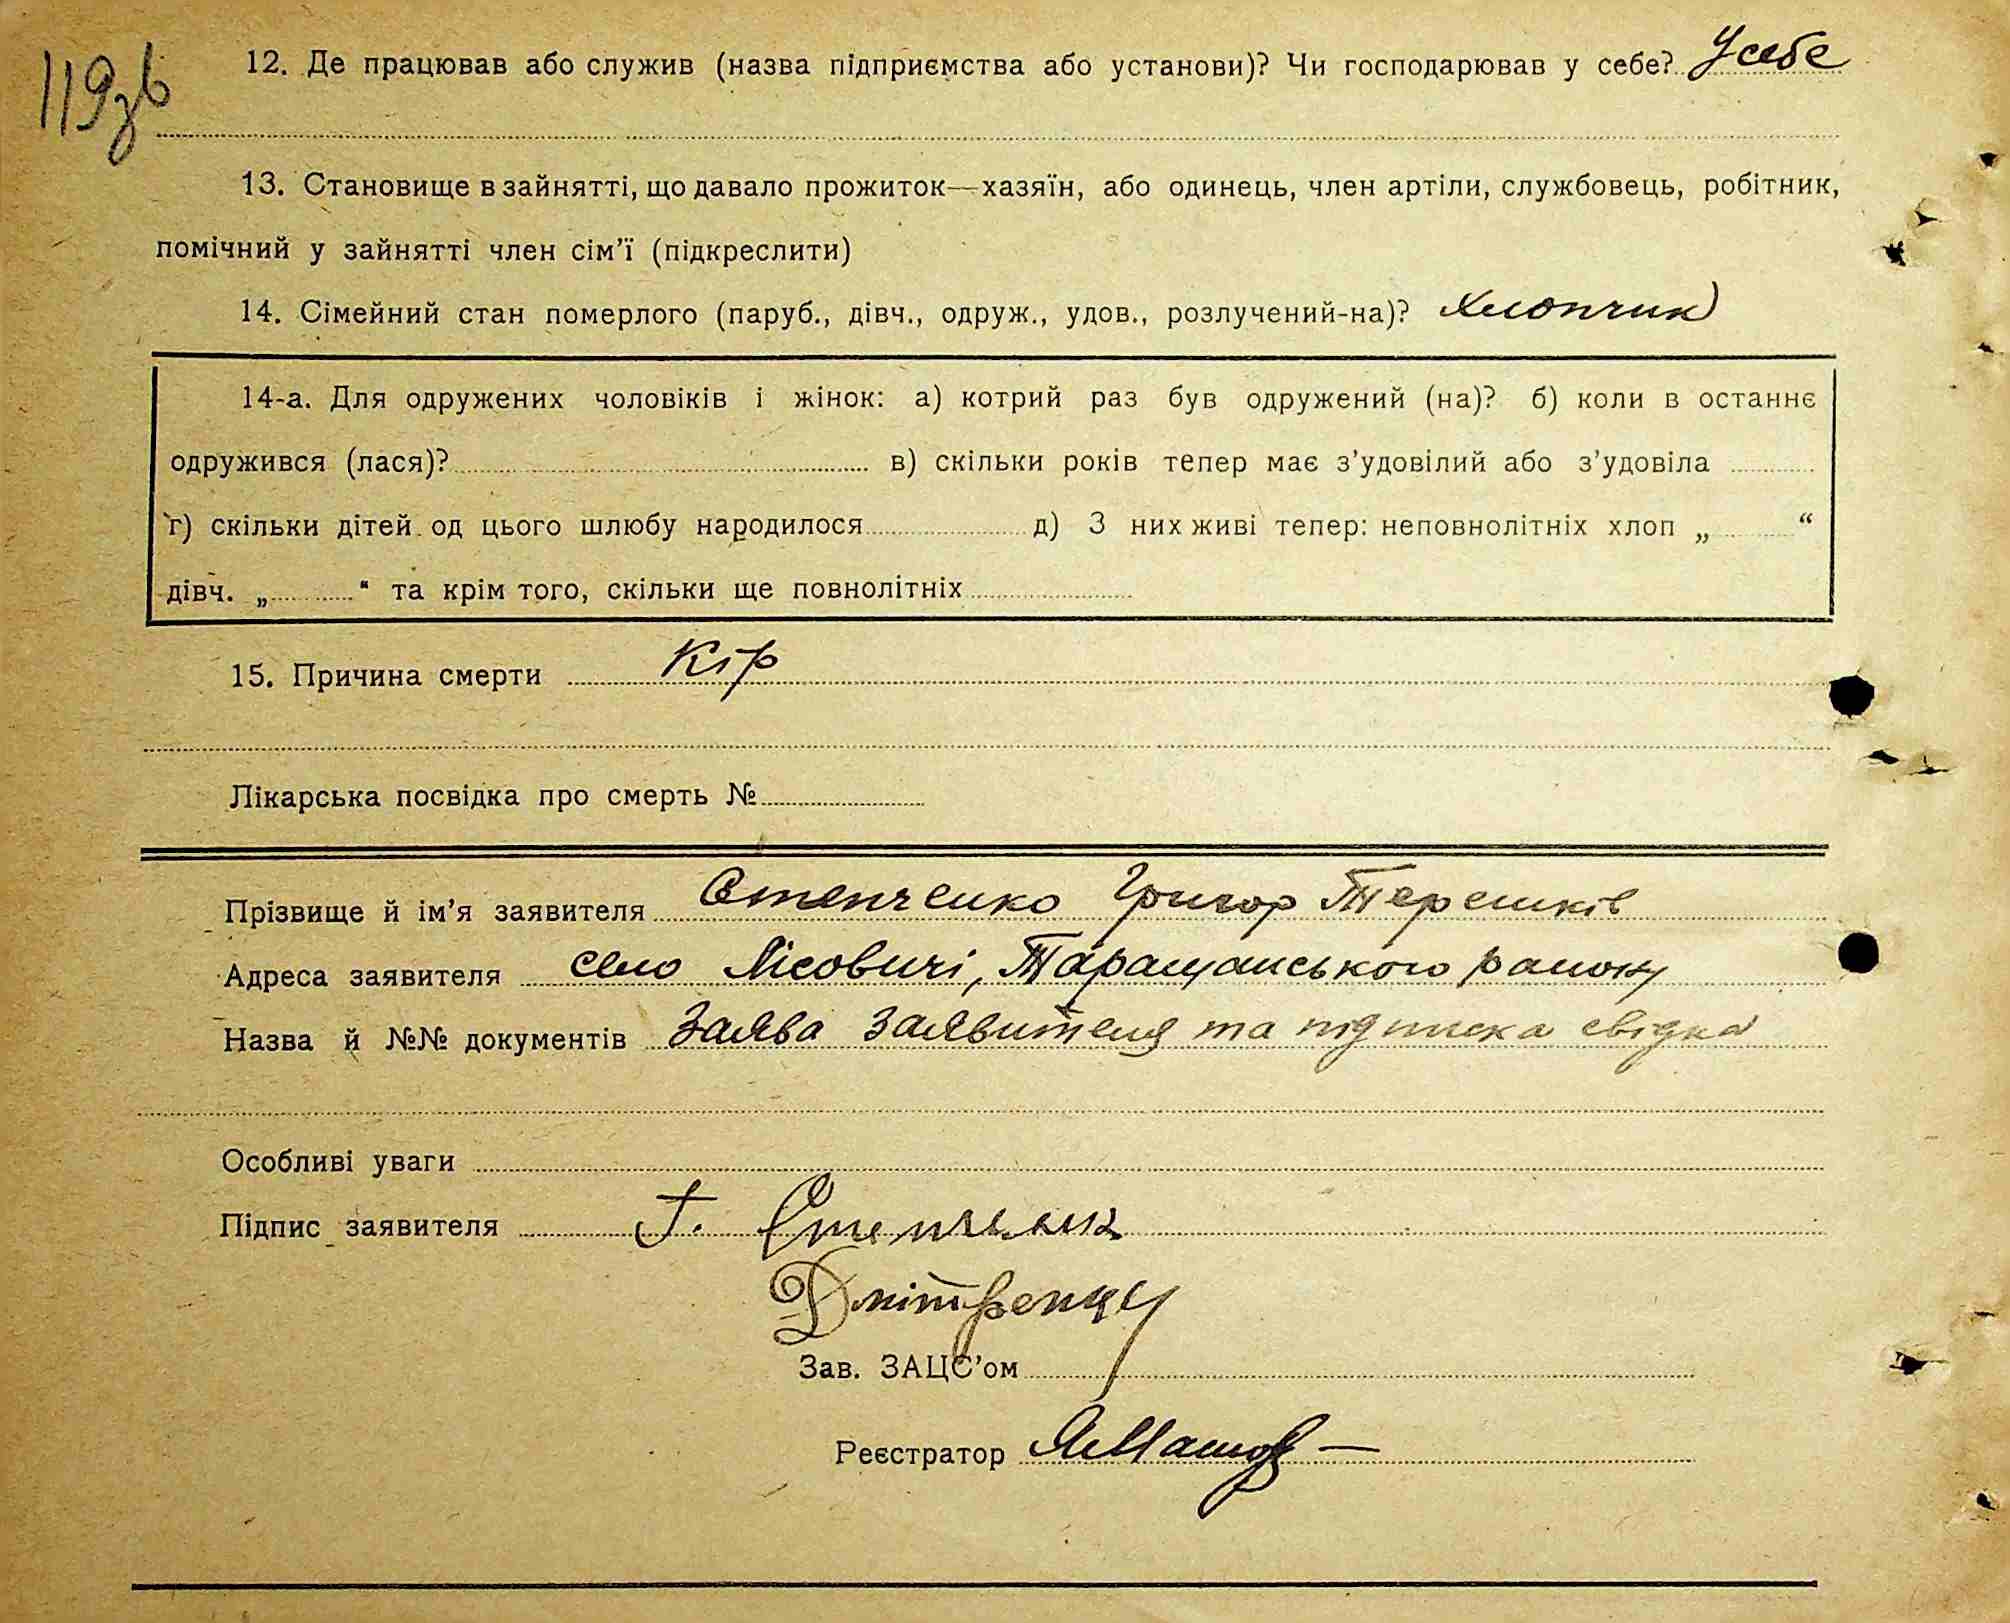 119зв
12. Де працював або служив (назва підприємства або установи)? Чи господарював у себе? У себе
13. Становище в зайнятті, що давало прожиток—хазяїн, або одинець, член артіли, службовець, робітник,
помічний у зайнятті член сім’ї (підкреслити)
14. Сімейний стан померлого (паруб., дівч., одруж., удов., розлучений-на)? Хлопчик
14-а. Для одружених чоловіків і жінок: а) котрий раз був одружений (на)? б) коли в останнє
одружився (лася)? в) скільки років тепер має з’удовілий або з’удовіла
г) скільки дітей од цього шлюбу народилося д) З них живі тепер: неповнолітніх хлоп „ “
дівч. „ “ та крім того, скільки ще повнолітніх
15. Причина смерти Кір
Лікарська посвідка про смерть №
Прізвище й ім’я заявителя Степченко Григор Терешків
Адреса заявителя село Лісовичі, Таращанського району
Назва й №№ документів Заява заявителя та підписка свідка
Особливі уваги
Підпис заявителя Г. Степченк
Зав. ЗАЦС’ом
Реєстратор